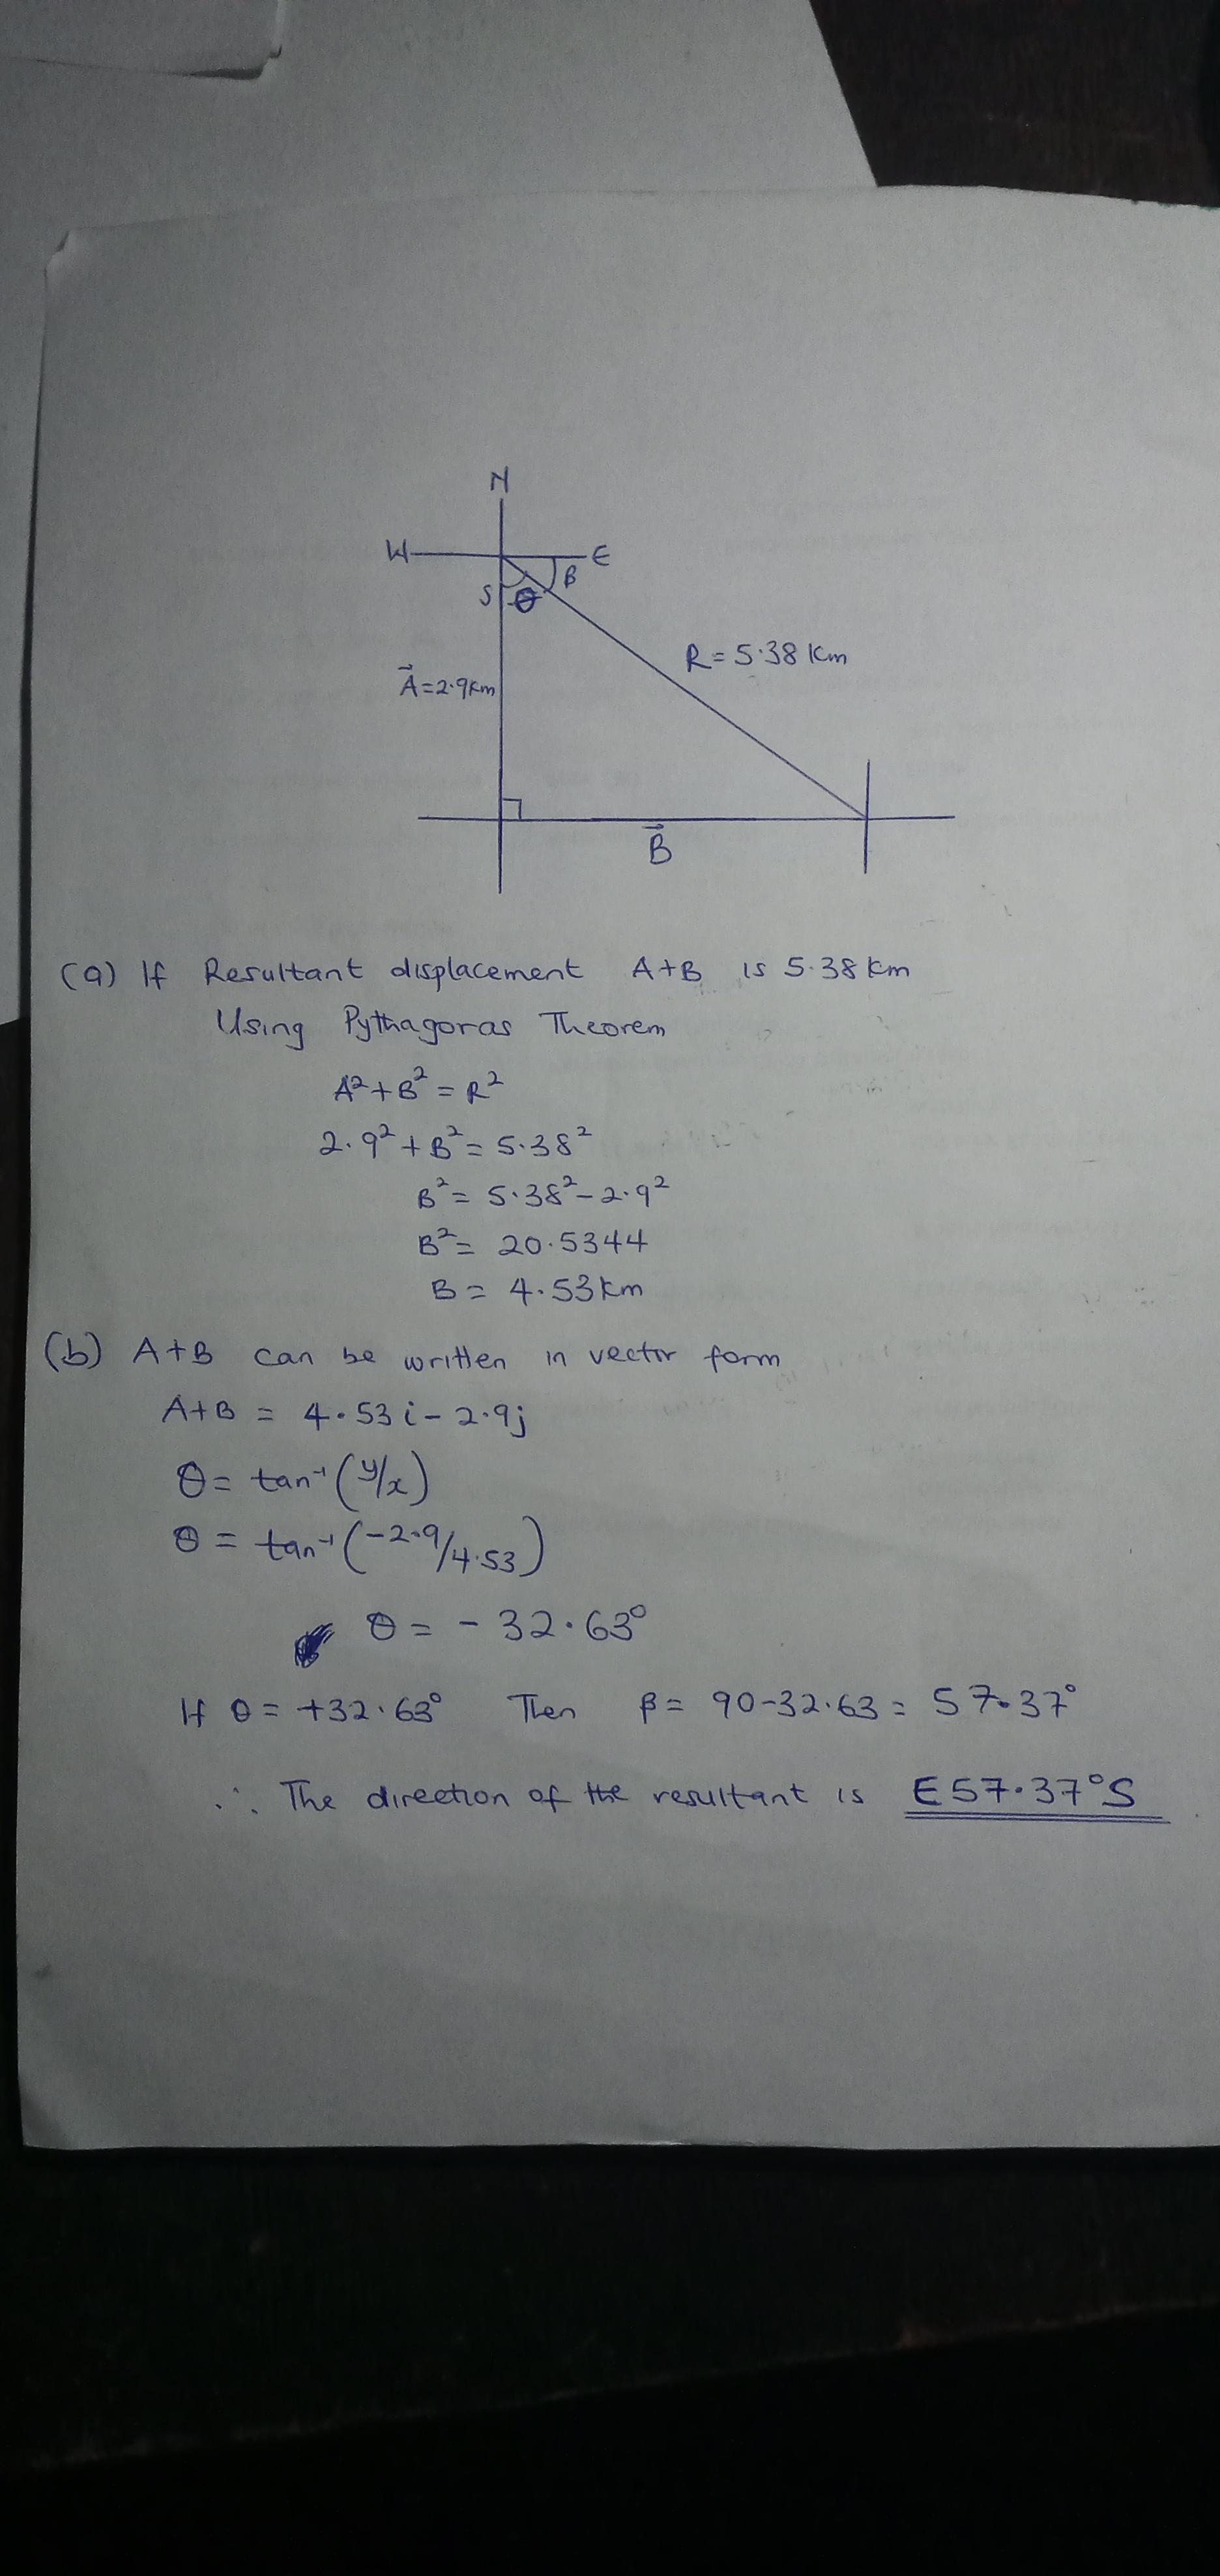 N
W E
S θ β
R = 5.38 km
A⃗ = 2.9km
B⃗
(a) If Resultant displacement A+B is 5.38 km
Using Pythagoras Theorem
A² + B² = R²
2.9² + B² = 5.38²
B² = 5.38² - 2.9²
B² = 20.5344
B = 4.53 km
(b) A+B can be written in vector form
A+B = 4.53 i - 2.9j
θ = tan⁻¹ (y/x)
θ = tan⁻¹ (-2.9/4.53)
θ = - 32.63°
If θ = +32.63° Then β = 90-32.63 = 57.37°
∴ The direction of the resultant is E57.37°S